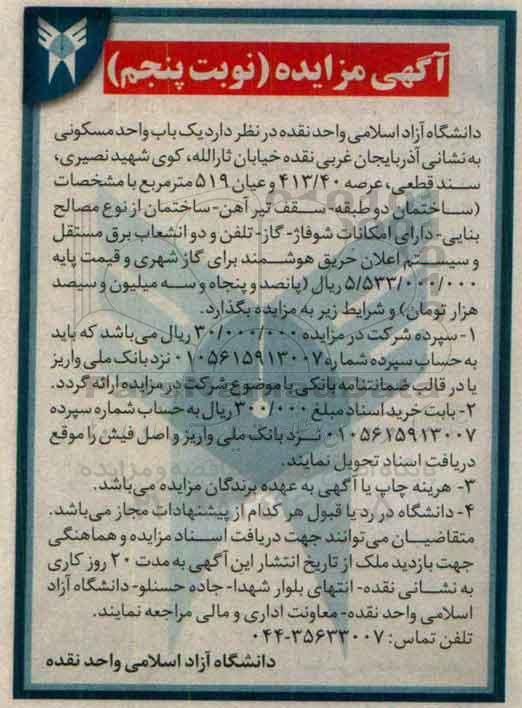 آگهی مزایده (نوبت پنجم)
دانشگاه آزاد اسلامی واحد نقده در نظر دارد یک باب واحد مسکونی
به نشانی آذربایجان غربی نقده خیابان ثارالله، کوی شهید نصیری،
سند قطعی، عرصه ۴۱۳/۴۰ و عیان ۵۱۹ مترمربع با مشخصات
(ساختمان دو طبقه- سقف تیر آهن- ساختمان از نوع مصالح
بنایی- دارای امکانات شوفاژ- گاز- تلفن و دو انشعاب برق مستقل
و سیستم اعلان حریق هوشمند برای گاز شهری و قیمت پایه
۵/۵۳۳/۰۰۰/۰۰۰ ریال (پانصد و پنجاه و سه میلیون و سیصد
هزار تومان) و شرایط زیر به مزایده بگذارد.
۱- سپرده شرکت در مزایده ۳۰/۰۰۰/۰۰۰ ریال می‌باشد که باید
به حساب سپرده شماره ۰۱۰۵۶۱۵۹۱۳۰۰۷ نزد بانک ملی واریز
یا در قالب ضمانتنامه بانکی با موضوع شرکت در مزایده ارائه گردد.
۲- بابت خرید اسناد مبلغ ۳۰۰/۰۰۰ ریال به حساب شماره سپرده
۰۱۰۵۶۱۵۹۱۳۰۰۷ نزد بانک ملی واریز و اصل فیش را موقع
دریافت اسناد تحویل نمایند.
۳- هزینه چاپ یا آگهی به عهده برندگان مزایده می‌باشد.
۴- دانشگاه در رد یا قبول هر کدام از پیشنهادات مجاز می‌باشد.
متقاضیان می‌توانند جهت دریافت اسناد مزایده و هماهنگی
جهت بازدید ملک از تاریخ انتشار این آگهی به مدت ۲۰ روز کاری
به نشانی نقده- انتهای بلوار شهدا- جاده حسنلو- دانشگاه آزاد
اسلامی واحد نقده- معاونت اداری و مالی مراجعه نمایند.
تلفن تماس: ۳۵۶۳۳۰۰۷-۰۴۴
دانشگاه آزاد اسلامی واحد نقده